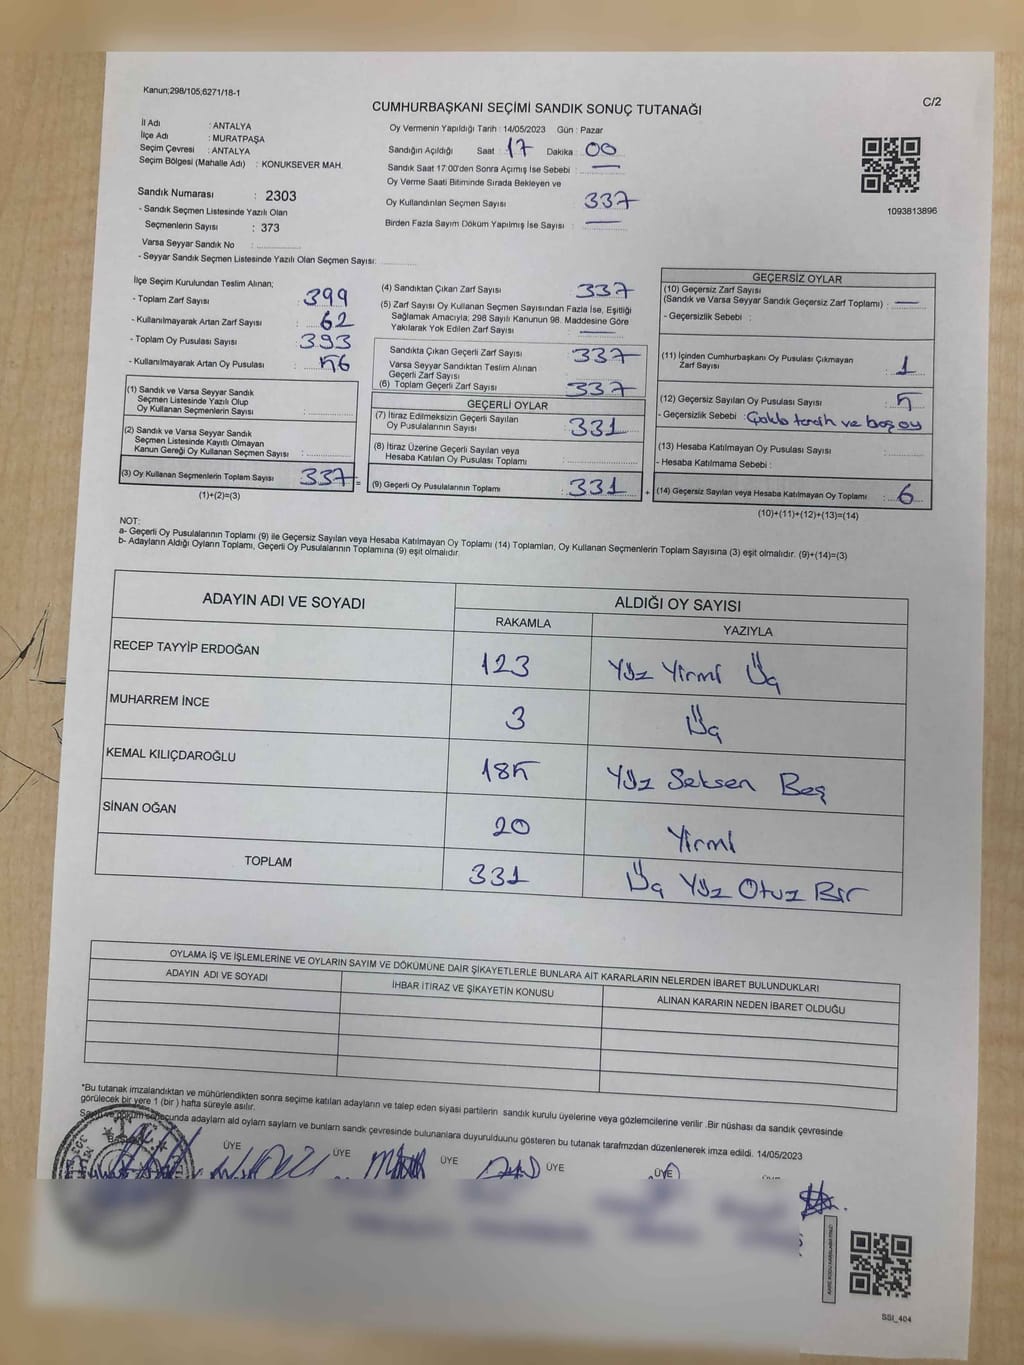 Kanun;298/105,6271/18-1
C/2
CUMHURBAŞKANI SEÇİMİ SANDIK SONUÇ TUTANAĞI
İl Adı : ANTALYA
İlçe Adı : MURATPAŞA
Seçim Çevresi : ANTALYA
Seçim Bölgesi (Mahalle Adı) : KONUKSEVER MAH.
Oy Vermenin Yapıldığı Tarih : 14/05/2023 Gün : Pazar
Sandığın Açıldığı Saat : 17 Dakika : 00
Sandık Saat 17:00'den Sonra Açımış İse Sebebi : —
Oy Verme Saati Bitiminde Sırada Bekleyen ve
Oy Kullandırılan Seçmen Sayısı 337
Birden Fazla Sayım Döküm Yapılmış İse Sayısı : —
1093813896
Sandık Numarası : 2303
- Sandık Seçmen Listesinde Yazılı Olan
Seçmenlerin Sayısı : 373
Varsa Seyyar Sandık No :
- Seyyar Sandık Seçmen Listesinde Yazılı Olan Seçmen Sayısı:
İlçe Seçim Kurulundan Teslim Alınan;
- Toplam Zarf Sayısı : 399
- Kullanılmayarak Artan Zarf Sayısı : 62
- Toplam Oy Pusulası Sayısı : 393
- Kullanılmayarak Artan Oy Pusulası : 56
(1) Sandık ve Varsa Seyyar Sandık
Seçmen Listesinde Yazılı Olup
Oy Kullanan Seçmenlerin Sayısı :
(2) Sandık ve Varsa Seyyar Sandık
Seçmen Listesinde Kayıtlı Olmayan
Kanun Gereği Oy Kullanan Seçmen Sayısı :
(3) Oy Kullanan Seçmenlerin Toplam Sayısı 337 =
(1)+(2)=(3)
(4) Sandıktan Çıkan Zarf Sayısı 337
(5) Zarf Sayısı Oy Kullanan Seçmen Sayısından Fazla İse, Eşitliği
Sağlamak Amacıyla; 298 Sayılı Kanunun 98. Maddesine Göre
Yakılarak Yok Edilen Zarf Sayısı : —
Sandıkta Çıkan Geçerli Zarf Sayısı : 337
Varsa Seyyar Sandıktan Teslim Alınan
Geçerli Zarf Sayısı
(6) Toplam Geçerli Zarf Sayısı : 337
GEÇERLİ OYLAR
(7) İtiraz Edilmeksizin Geçerli Sayılan
Oy Pusulalarının Sayısı : 331
(8) İtiraz Üzerine Geçerli Sayılan veya
Hesaba Katılan Oy Pusulası Toplamı :
(9) Geçerli Oy Pusulalarının Toplamı : 331 +
GEÇERSİZ OYLAR
(10) Geçersiz Zarf Sayısı
(Sandık ve Varsa Seyyar Sandık Geçersiz Zarf Toplamı) : —
- Geçersizlik Sebebi :
(11) İçinden Cumhurbaşkanı Oy Pusulası Çıkmayan
Zarf Sayısı : 1
(12) Geçersiz Sayılan Oy Pusulası Sayısı : 5
- Geçersizlik Sebebi : Çoklu tercih ve boş oy
(13) Hesaba Katılmayan Oy Pusulası Sayısı :
- Hesaba Katılmama Sebebi :
(14) Geçersiz Sayılan veya Hesaba Katılmayan Oy Toplamı : 6
(10)+(11)+(12)+(13)=(14)
NOT:
a- Geçerli Oy Pusulalarının Toplamı (9) ile Geçersiz Sayılan veya Hesaba Katılmayan Oy Toplamı (14) Toplamları, Oy Kullanan Seçmenlerin Toplam Sayısına (3) eşit olmalıdır. (9)+(14)=(3)
b- Adayların Aldığı Oyların Toplamı, Geçerli Oy Pusulalarının Toplamına (9) eşit olmalıdır.
ADAYIN ADI VE SOYADI ALDIĞI OY SAYISI
RAKAMLA YAZIYLA
RECEP TAYYİP ERDOĞAN 123 Yüz Yirmi Üç
MUHARREM İNCE 3 Üç
KEMAL KILIÇDAROĞLU 185 Yüz Seksen Beş
SİNAN OĞAN 20 Yirmi
TOPLAM 331 Üç Yüz Otuz Bir
OYLAMA İŞ VE İŞLEMLERİNE VE OYLARIN SAYIM VE DÖKÜMÜNE DAİR ŞİKAYETLERLE BUNLARA AİT KARARLARIN NELERDEN İBARET BULUNDUKLARI
ADAYIN ADI VE SOYADI İHBAR İTİRAZ VE ŞİKAYETİN KONUSU ALINAN KARARIN NEDEN İBARET OLDUĞU
*Bu tutanak imzalandıktan ve mühürlendikten sonra seçime katılan adayların ve talep eden siyasi partilerin sandık kurulu üyelerine veya gözlemcilerine verilir .Bir nüshası da sandık çevresinde
görülecek bir yere 1 (bir ) hafta süreyle asılır.
adayların ald oyların sayların ve bunların sandk çevresinde bulunanlara duyurulduunu gösteren bu tutanak tarafmzdan düzenlenerek imza edildi. 14/05/2023
ÜYE ÜYE ÜYE ÜYE ÜYE
SSI_404